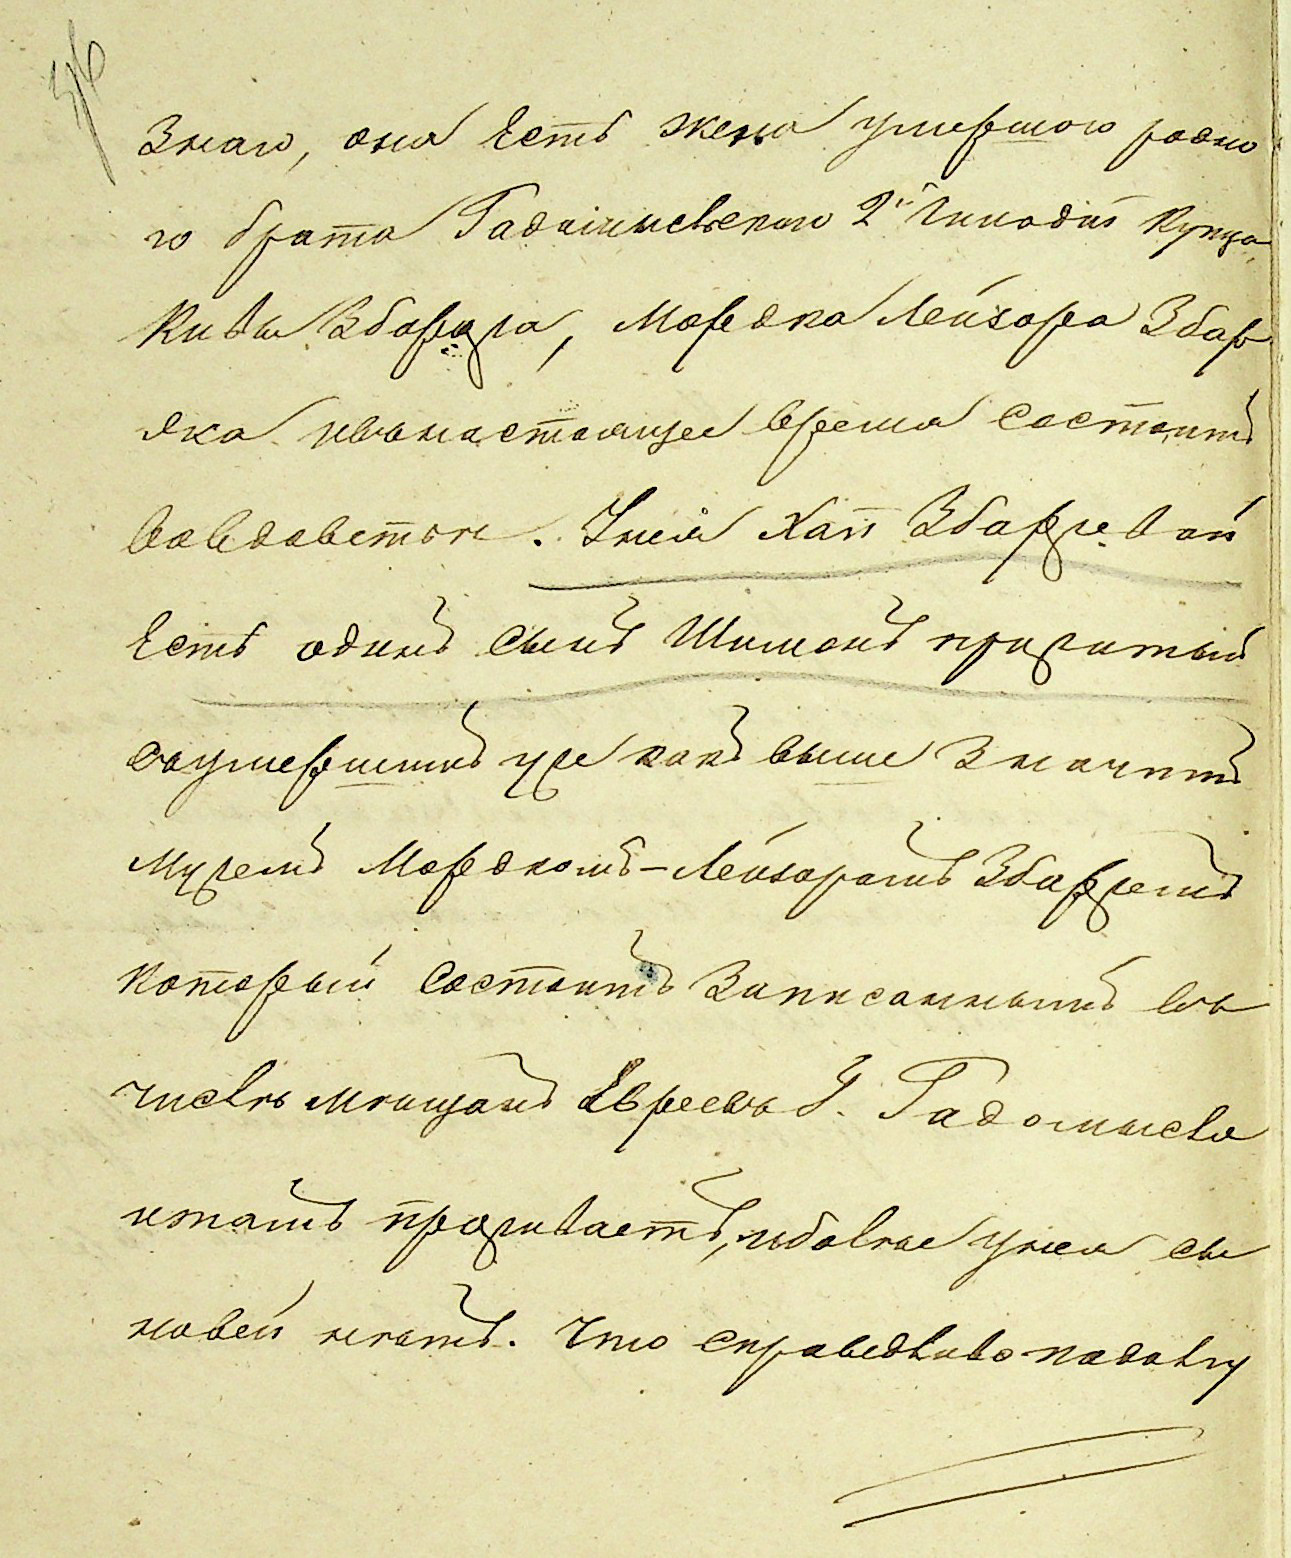 знаю, она есть жена умершого родно
го брата Радомысльскаго 2й Гильдiи Купца
Кивы Збаржа, Мордка Лейзора Збар
жа и въ настоящее время состоитъ
во вдовстве. У нея Хаи Збаржевой
есть одинъ сынъ Шимонъ прижитый
съ умершимъ уже какъ выше значитъ
мужемъ Мордкомъ-Лейзоромъ Збаржемъ
который состоитъ записаннымъ въ
числѣ мещанъ Евреевъ г. Радомысля
и тамъ проживаетъ, и болѣе у нея сы
новей нѣтъ. Что справедливо